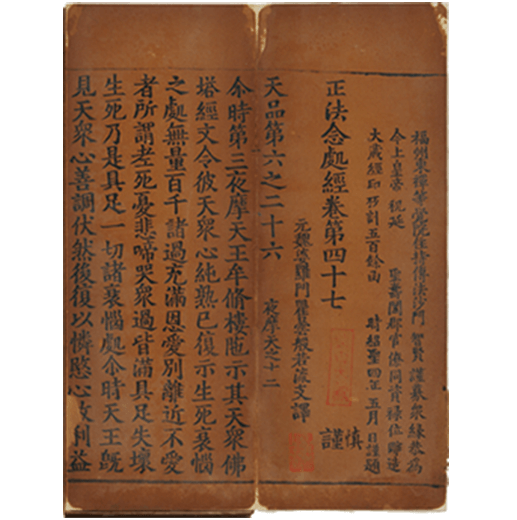 福州東禪等覺院住持傳法沙門 智賢 謹募衆緣恭為
今上皇帝 祝延 聖壽闔郡官僚同資禄位雕造
大藏經印板計五百餘函 時紹聖四年五月 日謹題
慎
正法念處經卷第四十七 謹
元魏婆羅門瞿曇般若流支譯
天品第六之二十六 夜摩天之十二
尒時第三夜摩天王牟修樓陁示其天衆佛
塔經文令彼天衆心純熟已復示生死衰惱
之處無量百千諸過充滿恩愛別離近不愛
者所謂老死憂悲啼哭衆過皆滿具足失壞
生死乃是具足一切諸衰惱處尒時天王旣
見天衆心善調伏然後復以憐愍心故利益